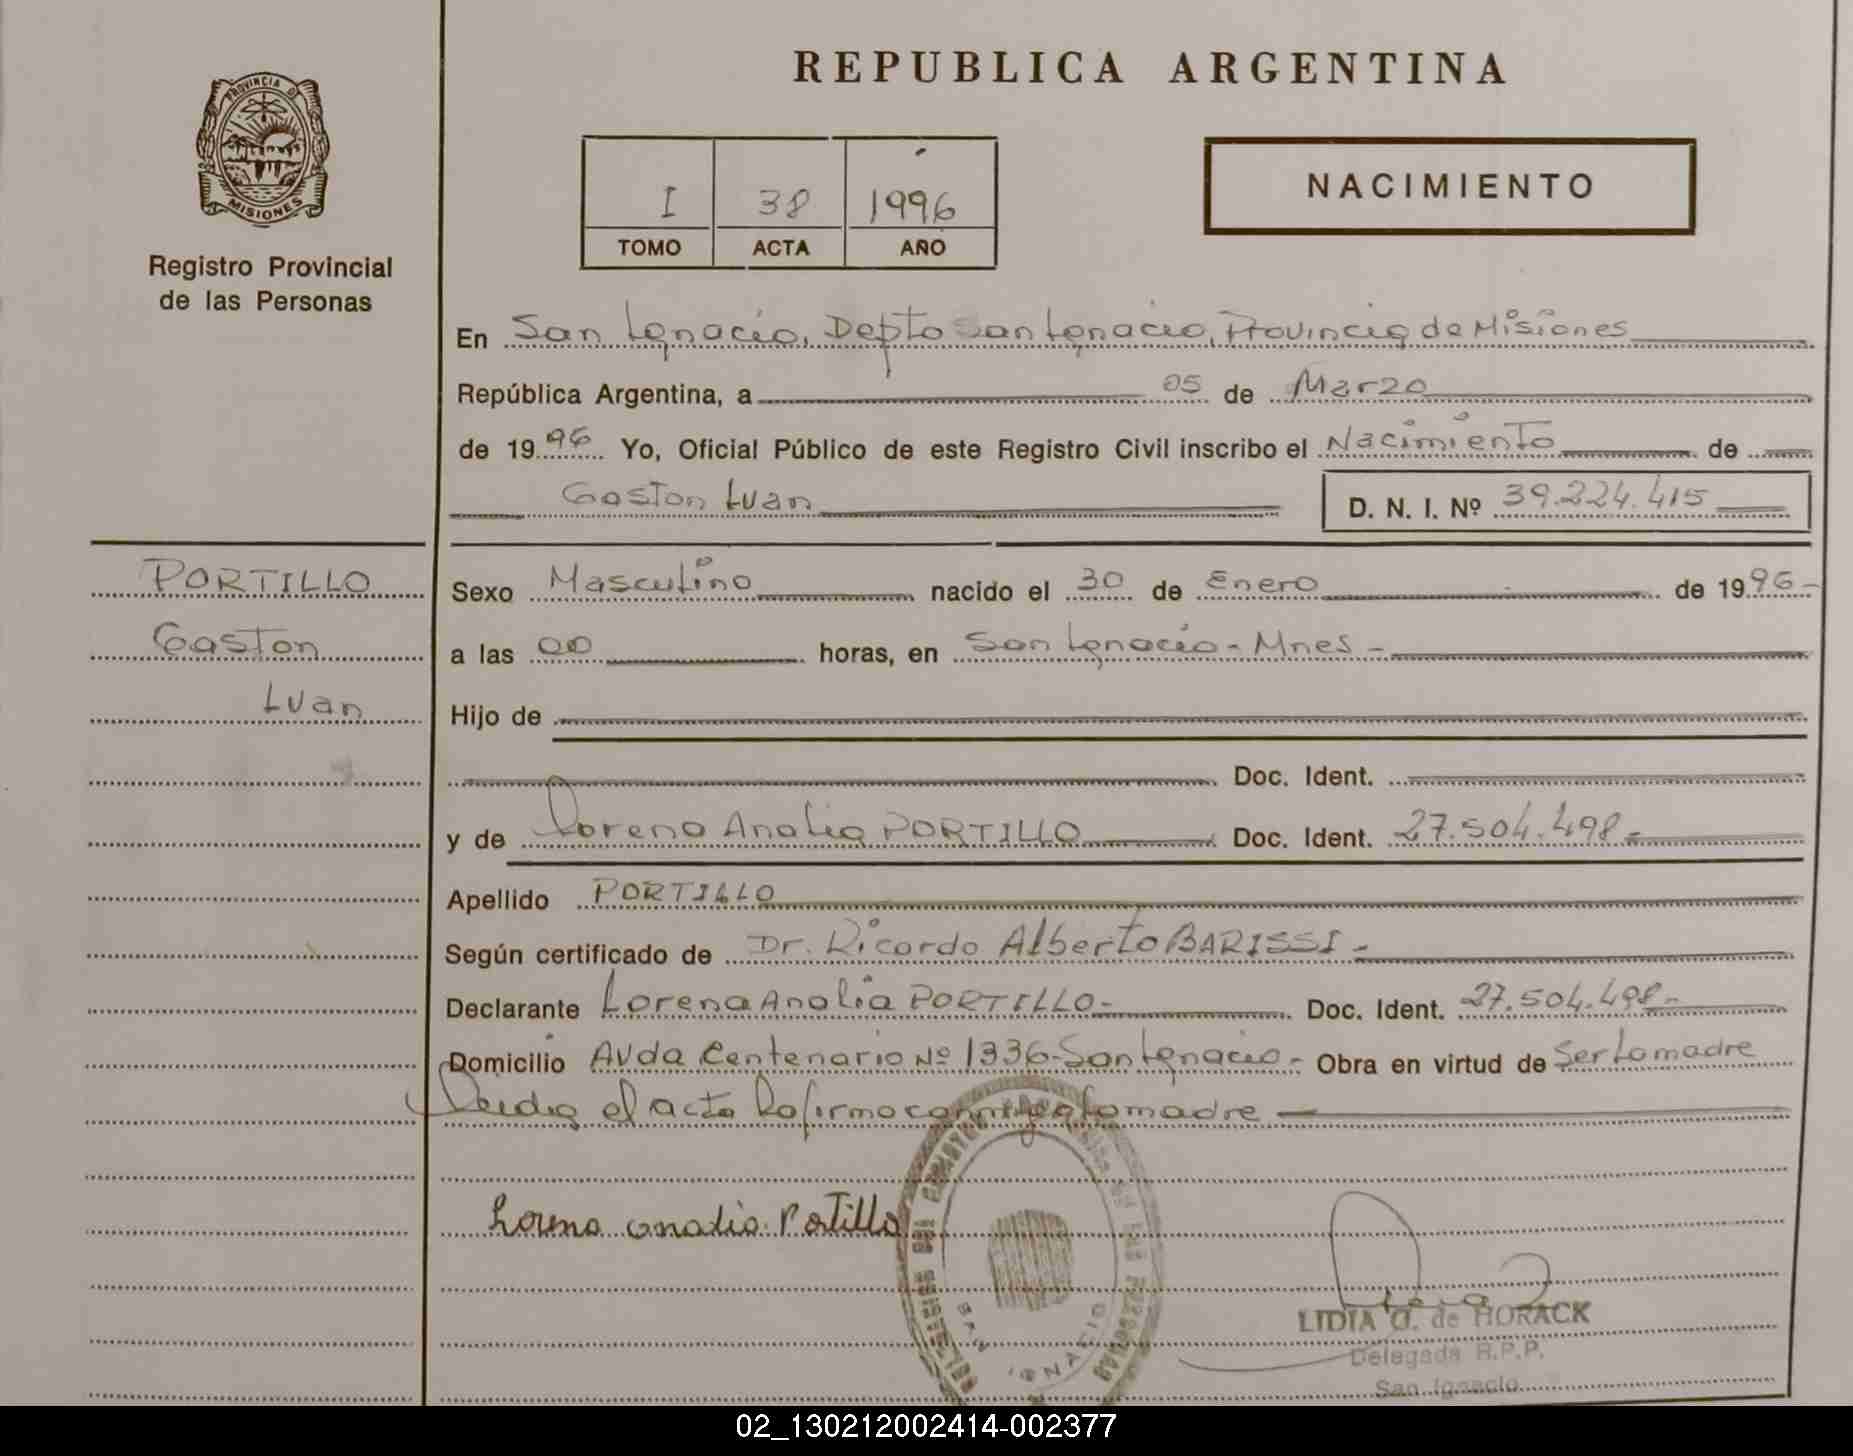 PROVINCIA DE
MISIONES
Registro Provincial
de las Personas
REPUBLICA ARGENTINA
I 38 1996
TOMO ACTA AÑO
NACIMIENTO
En San Ignacio, Depto San Ignacio, Provincia de Misiones
República Argentina, a 05 de Marzo
de 1996 Yo, Oficial Público de este Registro Civil inscribo el Nacimiento de
Gaston Luan D. N. I. Nº 39.224.415
PORTILLO
Gaston
Luan
Sexo Masculino nacido el 30 de Enero de 1996-
a las 00 horas, en San Ignacio - Mnes -
Hijo de
Doc. Ident.
y de Lorena Analia PORTILLO Doc. Ident. 27.504.498-
Apellido PORTILLO
Según certificado de Dr. Ricardo Alberto BARISSI-
Declarante Lorena Analia PORTILLO- Doc. Ident. 27.504.498-
Domicilio Avda Centenario Nº 1336-San Ignacio- Obra en virtud de Ser la madre
Leida el acta la firma conmigo la madre
Lorena analia Portillo
SAN IGNACIO
LIDIA O. de HORACK
Delegada R.P.P.
San Ignacio
02_130212002414-002377